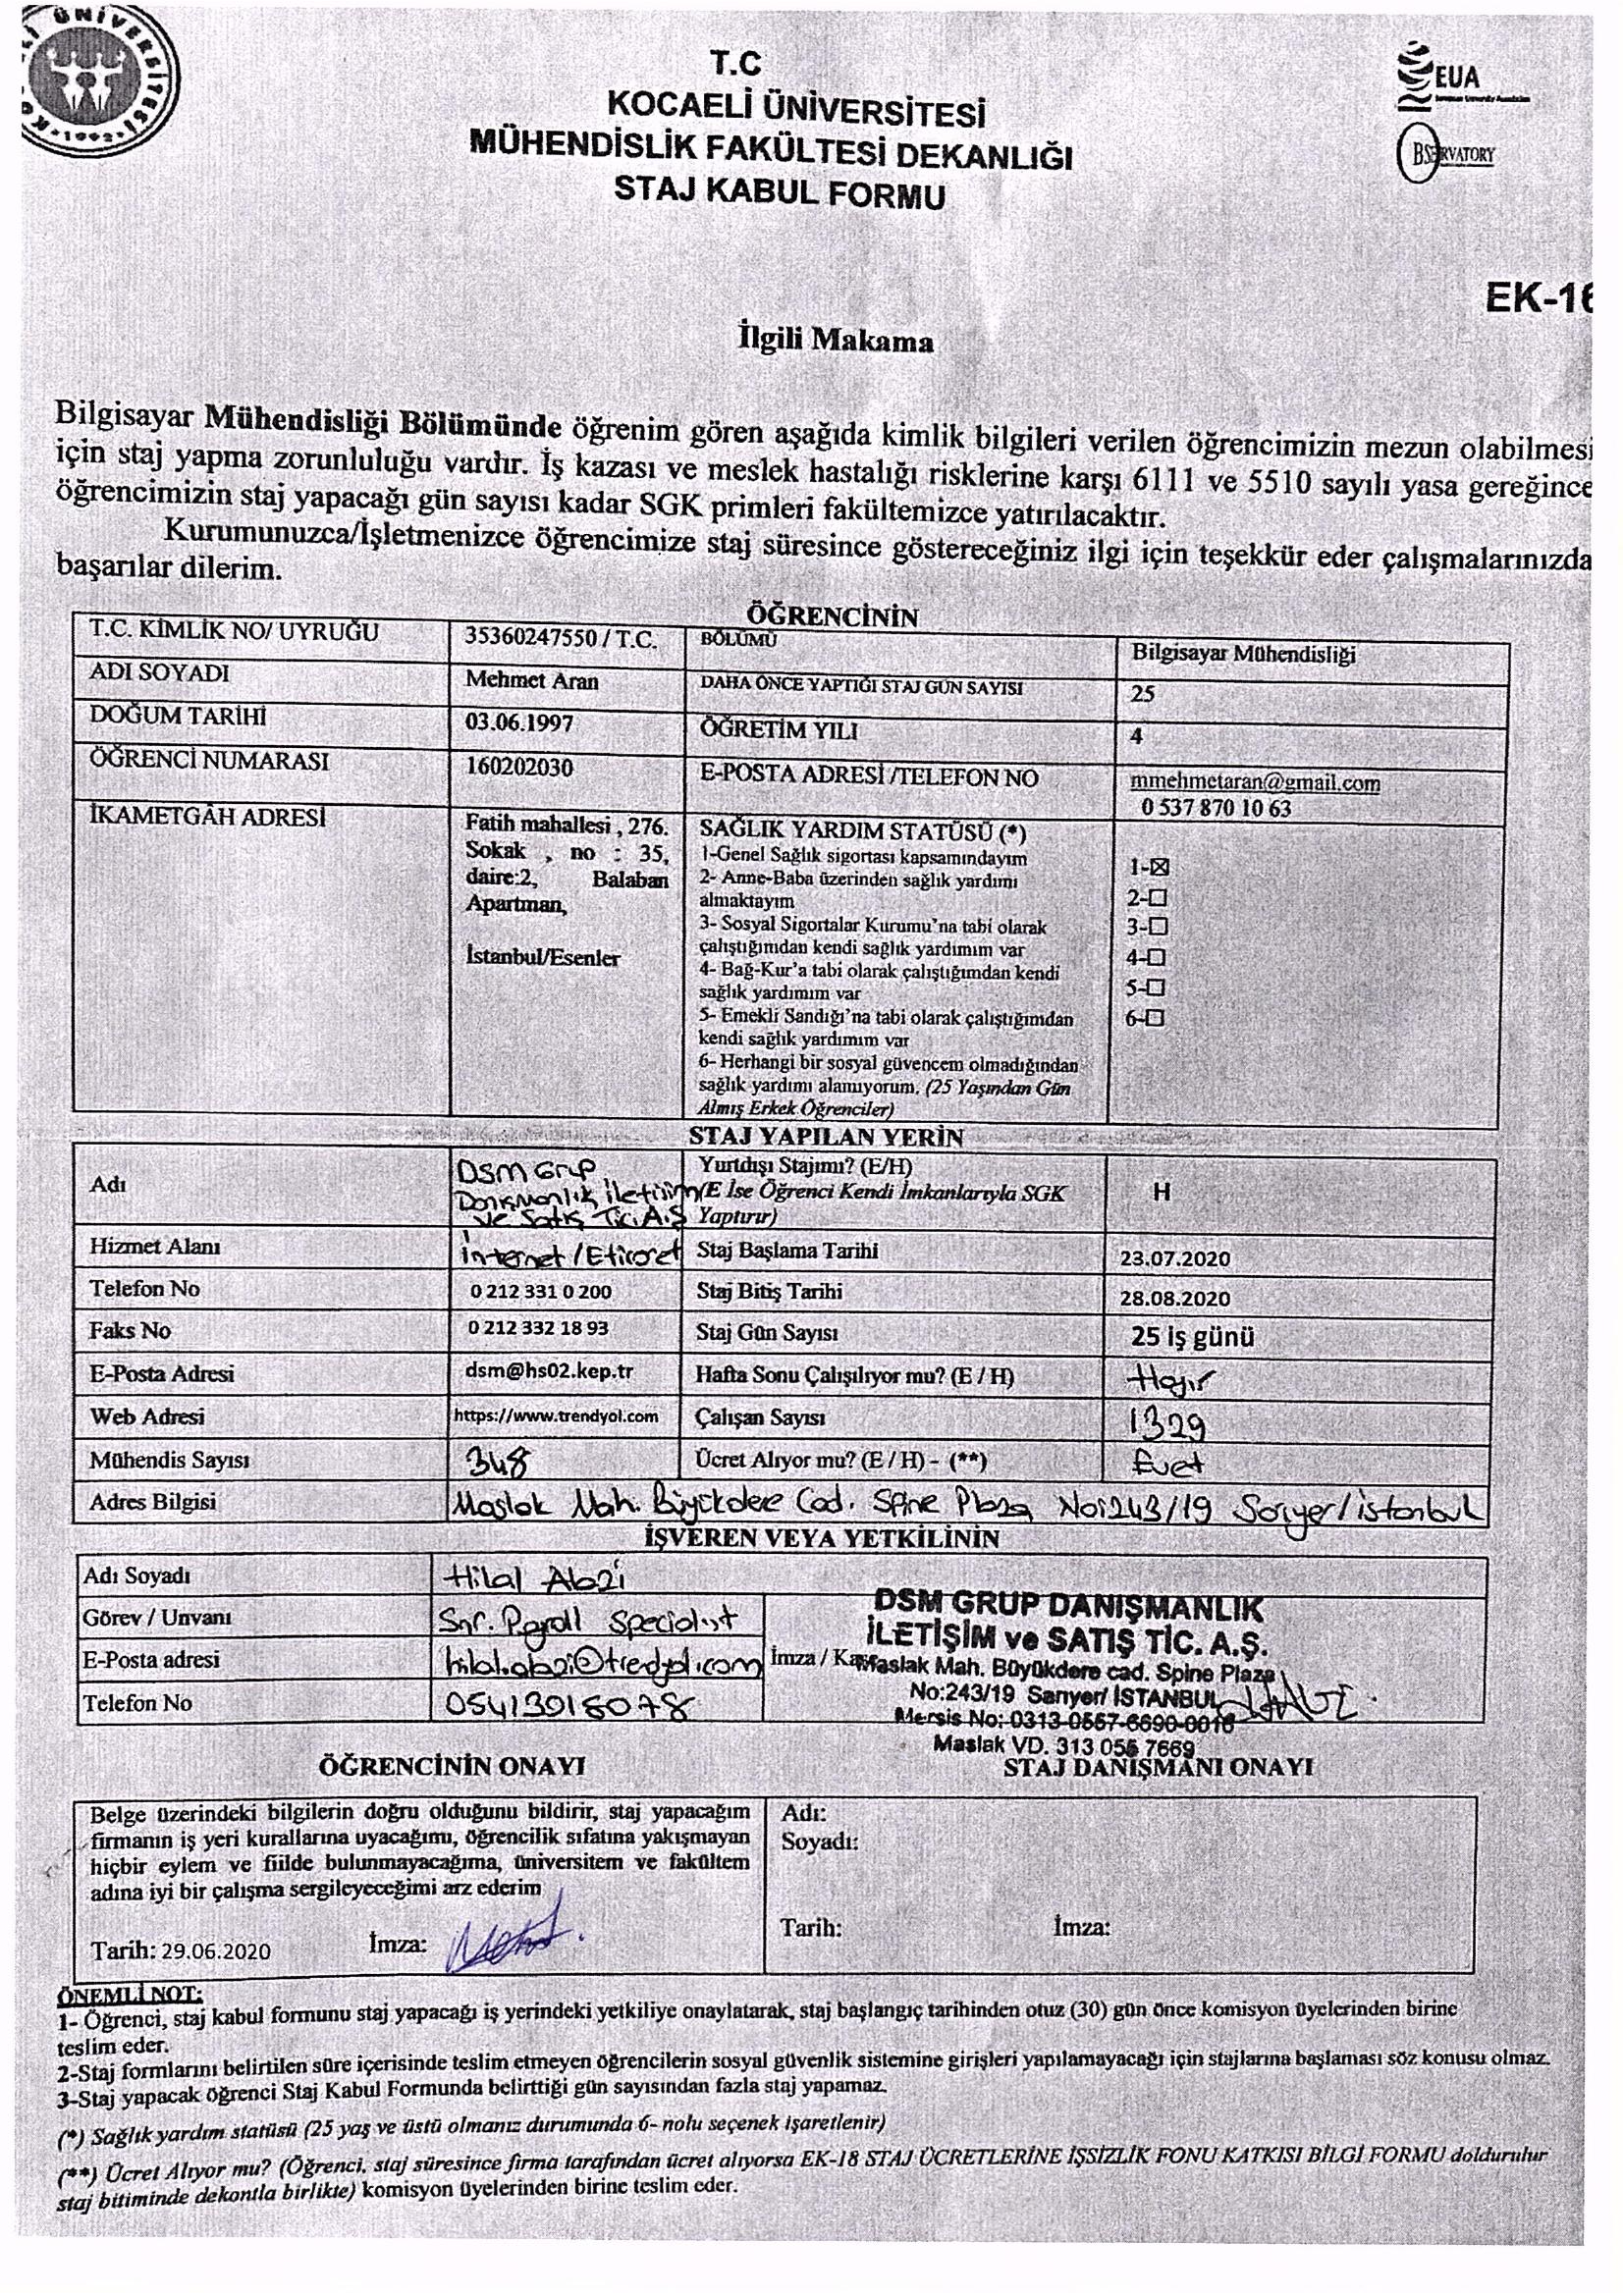 ÜNİVERSİTESİ
1992
EUA
OBSERVATORY
T.C
KOCAELİ ÜNİVERSİTESİ
MÜHENDİSLİK FAKÜLTESİ DEKANLIĞI
STAJ KABUL FORMU
EK-16
İlgili Makama
Bilgisayar Mühendisliği Bölümünde öğrenim gören aşağıda kimlik bilgileri verilen öğrencimizin mezun olabilmesi
için staj yapma zorunluluğu vardır. İş kazası ve meslek hastalığı risklerine karşı 6111 ve 5510 sayılı yasa gereğince
öğrencimizin staj yapacağı gün sayısı kadar SGK primleri fakültemizce yatırılacaktır.
Kurumunuzca/İşletmenizce öğrencimize staj süresince göstereceğiniz ilgi için teşekkür eder çalışmalarınızda
başarılar dilerim.
ÖĞRENCİNİN
T.C. KİMLİK NO/ UYRUĞU 35360247550 / T.C. BÖLÜMÜ Bilgisayar Mühendisliği
ADI SOYADI Mehmet Aran DAHA ÖNCE YAPTIĞI STAJ GÜN SAYISI 25
DOĞUM TARİHİ 03.06.1997 ÖĞRETİM YILI 4
ÖĞRENCİ NUMARASI 160202030 E-POSTA ADRESİ /TELEFON NO mmehmetaran@gmail.com
0 537 870 10 63
İKAMETGÂH ADRESİ Fatih mahallesi , 276. SAĞLIK YARDIM STATÜSÜ (*)
Sokak , no : 35, 1-Genel Sağlık sigortası kapsamındayım 1-☒
daire:2, Balaban 2- Anne-Baba üzerinden sağlık yardımı 2-☐
Apartman, almaktayım
3- Sosyal Sigortalar Kurumu'na tabi olarak 3-☐
İstanbul/Esenler çalıştığımdan kendi sağlık yardımım var
4- Bağ-Kur'a tabi olarak çalıştığımdan kendi 4-☐
sağlık yardımım var 5-☐
5- Emekli Sandığı'na tabi olarak çalıştığımdan 6-☐
kendi sağlık yardımım var
6- Herhangi bir sosyal güvencem olmadığından
sağlık yardımı alamıyorum. (25 Yaşından Gün
Almış Erkek Öğrenciler)
STAJ YAPILAN YERİN
Adı DSM Grup Yurtdışı Stajımı? (E/H) H
Danışmanlık iletişim (E İse Öğrenci Kendi İmkanlarıyla SGK
ve Satış Tic. A.Ş Yaptırır)
Hizmet Alanı internet / Eticaret Staj Başlama Tarihi 23.07.2020
Telefon No 0 212 331 0 200 Staj Bitiş Tarihi 28.08.2020
Faks No 0 212 332 18 93 Staj Gün Sayısı 25 iş günü
E-Posta Adresi dsm@hs02.kep.tr Hafta Sonu Çalışılıyor mu? (E / H) Hayır
Web Adresi https://www.trendyol.com Çalışan Sayısı 1329
Mühendis Sayısı 348 Ücret Alıyor mu? (E / H) - (**) Evet
Adres Bilgisi Maslak Mah. Büyükdere Cad. Spine Plaza No:243/19 Sarıyer/istanbul
İŞVEREN VEYA YETKİLİNİN
Adı Soyadı Hilal Abzi
Görev / Unvanı Snr. Payroll Specialist
E-Posta adresi hilal.abzi@trendyol.com İmza / Kaşe
Telefon No 05413918078
DSM GRUP DANIŞMANLIK
İLETİŞİM ve SATIŞ TİC. A.Ş.
Maslak Mah. Büyükdere cad. Spine Plaza
No:243/19 Sarıyer/ İSTANBUL
Mersis No: 0313-0557-6690-0016
Maslak VD. 313 055 7669
ÖĞRENCİNİN ONAYI STAJ DANIŞMANI ONAYI
Belge üzerindeki bilgilerin doğru olduğunu bildirir, staj yapacağım Adı:
firmanın iş yeri kurallarına uyacağımı, öğrencilik sıfatına yakışmayan Soyadı:
hiçbir eylem ve fiilde bulunmayacağıma, üniversitem ve fakültem
adına iyi bir çalışma sergileyeceğimi arz ederim
Tarih: 29.06.2020 İmza: Tarih: İmza:
ÖNEMLİ NOT:
1- Öğrenci, staj kabul formunu staj yapacağı iş yerindeki yetkiliye onaylatarak, staj başlangıç tarihinden otuz (30) gün önce komisyon üyelerinden birine
teslim eder.
2-Staj formlarını belirtilen süre içerisinde teslim etmeyen öğrencilerin sosyal güvenlik sistemine girişleri yapılamayacağı için stajlarına başlaması söz konusu olmaz.
3-Staj yapacak öğrenci Staj Kabul Formunda belirttiği gün sayısından fazla staj yapamaz.
(*) Sağlık yardım statüsü (25 yaş ve üstü olmanız durumunda 6- nolu seçenek işaretlenir)
(**) Ücret Alıyor mu? (Öğrenci, staj süresince firma tarafından ücret alıyorsa EK-18 STAJ ÜCRETLERİNE İŞSİZLİK FONU KATKISI BİLGİ FORMU doldurulur
staj bitiminde dekontla birlikte) komisyon üyelerinden birine teslim eder.